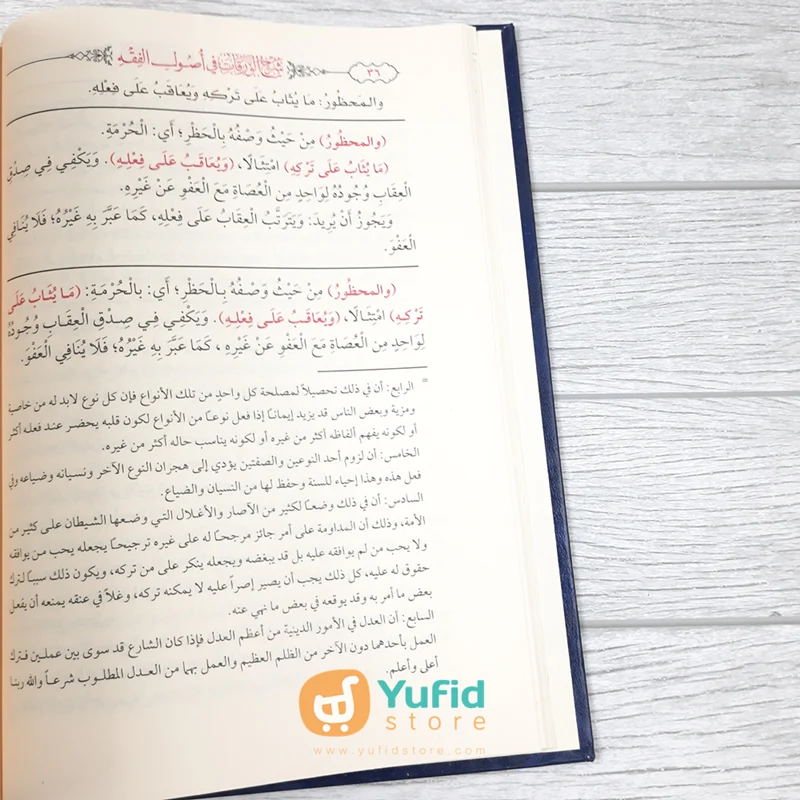 ٣٦
شرح الورقات في أصول الفقه
والمَحظُورُ: مَا يُثَابُ عَلى تَرْكِهِ وَيُعَاقَبُ عَلَى فِعْلِهِ.
(والمحظُورُ) مِنْ حَيْثُ وَصْفُهُ بِالْحَظْرِ؛ أَي: الْحُرْمَةِ.
(مَا يُثَابُ عَلَى تَرْكِهِ) امْتِثَالًا، (وَيُعَاقَبُ عَلَى فِعْلِهِ). وَيَكْفِي فِي صِدْقِ
الْعِقَابِ وُجُودُهُ لِوَاحِدٍ مِنِ الْعُصَاةِ مَعَ الْعَفْوِ عَنْ غَيْرِهِ.
وَيَجُوزُ أَنْ يُرِيدَ: وَيَتَرَتَّبُ الْعِقَابُ عَلَى فِعْلِهِ، كَمَا عَبَّرَ بِهِ غَيْرُهُ؛ فَلَا يُنَافِي
الْعَفْوَ.
(والمحظُورُ) مِنْ حَيْثُ وَصْفُهُ بِالْحَظْرِ؛ أَي: بِالْحُرْمَةِ: (مَا يُثَابُ عَلَى
تَرْكِهِ) امْتِثَالًا، (وَيُعَاقَبُ عَلَى فِعْلِهِ). وَيَكْفِي فِي صِدْقِ الْعِقَابِ وُجُودُهُ
لِوَاحِدٍ مِنِ الْعُصَاةِ مَعَ الْعَفْوِ عَنْ غَيْرِهِ، كَمَا عَبَّرَ بِهِ غَيْرُهُ؛ فَلَا يُنَافِي الْعَفْوَ.
= الرابع: أن في ذلك تحصيلاً لمصلحة كل واحدٍ من تلك الأنواع فإن كل نوع لابد له من خاصية
ومزية وبعض الناس قد يزيد إيمانًا إذا فعل نوعًا من الأنواع لكون قلبه يحضر عند فعله أكثر
أو لكونه يفهم ألفاظه أكثر من غيره أو لكونه يناسب حاله أكثر من غيره.
الخامس: أن لزوم أحد النوعين والصفتين يؤدي إلى هجران النوع الآخر ونسيانه وضياعه وفي
فعل هذه وهذا إحياء للسنة وحفظ لها من النسيان والضياع.
السادس: أن في ذلك وضعًا لكثير من الآصار والأغلال التي وضعها الشيطان على كثير من
الأمة، وذلك أن المداومة على أمر جائز مرجحًا له على غيره ترجيحًا يجعله يحب من يوافقه
ولا يحب من لم يوافقه عليه بل قد يبغضه ويجعله ينكر على من تركه، ويكون ذلك سببًا لترك
حقوق له عليه، كل ذلك يجب أن يصير إصراً عليه لا يمكنه تركه، وغلاً في عنقه يمنعه أن يفعل
بعض ما أمر به وقد يوقعه في بعض ما نهي عنه.
السابع: أن العدل في الأمور الدينية من أعظم العدل فإذا كان الشارع قد سوى بين عملين فترك
العمل بأحدهما دون الآخر من الظلم العظيم والعمل بهما من العدل المطلوب شرعاً والله ربنا
أعلى وأعلم.
Yufid
store
www.yufidstore.com